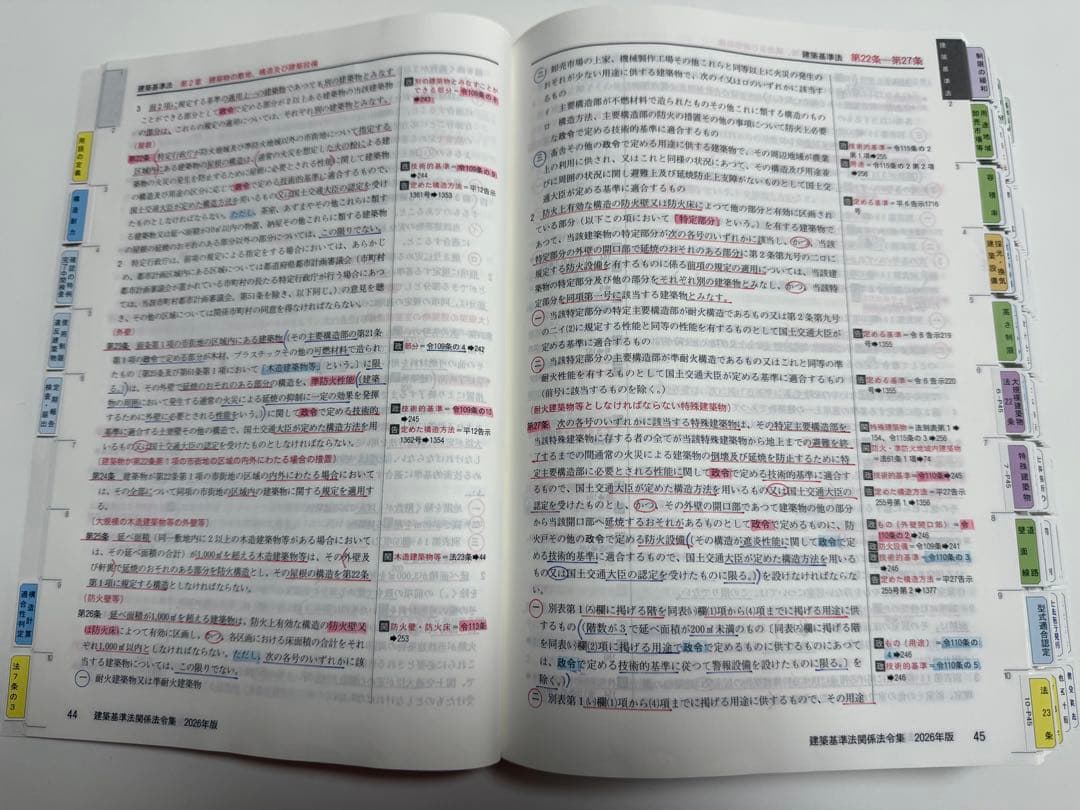 建築基準法 第2章 建築物の敷地、構造及び建築設備
3 前2項に規定する基準の適用上一の建築物であつても別の建築物とみなす
ことができる部分として政令で定める部分が2以上ある建築物の当該建築物
の部分は、これらの規定の適用については、それぞれ別の建築物とみなす。
別の建築物とみなすことができる部分=令109条の8
➡243
(屋根)
第22条 特定行政庁が防火地域及び準防火地域以外の市街地について指定する
区域内にある建築物の屋根の構造は、通常の火災を想定した火の粉による建
築物の火災の発生を防止するために屋根に必要とされる性能に関して建築物
の構造及び用途の区分に応じて政令で定める技術的基準に適合するもので、
国土交通大臣が定めた構造方法を用いるもの又は国土交通大臣の認定を受け
たものとしなければならない。ただし、茶室、あずまやその他これらに類す
る建築物又は延べ面積が10㎡以内の物置、納屋その他これらに類する建築物
の屋根の延焼のおそれのある部分以外の部分については、この限りでない。
技術的基準=令109条の9
➡244
定めた構造方法=平12告示
1361号➡1353
2 特定行政庁は、前項の規定による指定をする場合においては、あらかじ
め、都市計画区域内にある区域については都道府県都市計画審議会(市町村
都市計画審議会が置かれている市町村の長たる特定行政庁が行う場合にあつ
ては、当該市町村都市計画審議会。第51条を除き、以下同じ。)の意見を聴
き、その他の区域については関係市町村の同意を得なければならない。
(外壁)
第23条 前条第1項の市街地の区域内にある建築物(その主要構造部の第21条
第1項の政令で定める部分が木材、プラスチックその他の可燃材料で造られ
たもの(第25条及び第61条第1項において「木造建築物等」という。)に限
る。)は、その外壁で延焼のおそれのある部分の構造を、準防火性能(建築
物の周囲において発生する通常の火災による延焼の抑制に一定の効果を発揮
するために外壁に必要とされる性能をいう。)に関して政令で定める技術的
基準に適合する土塗壁その他の構造で、国土交通大臣が定めた構造方法を用
いるもの又は国土交通大臣の認定を受けたものとしなければならない。
部分=令109条の4➡242
技術的基準=令109条の10
➡245
定めた構造方法=平12告示
1362号➡1354
(建築物が第22条第1項の市街地の区域の内外にわたる場合の措置)
第24条 建築物が第22条第1項の市街地の区域の内外にわたる場合において
は、その全部について同項の市街地の区域内の建築物に関する規定を適用す
る。
(大規模の木造建築物等の外壁等)
第25条 延べ面積(同一敷地内に2以上の木造建築物等がある場合において
は、その延べ面積の合計)が1,000㎡を超える木造建築物等は、その外壁及
び軒裏で延焼のおそれのある部分を防火構造とし、その屋根の構造を第22条
第1項に規定する構造としなければならない。
木造建築物等=法23条➡44
(防火壁等)
第26条 延べ面積が1,000㎡を超える建築物は、防火上有効な構造の防火壁又
は防火床によつて有効に区画し、かつ、各区画における床面積の合計をそれ
ぞれ1,000㎡以内としなければならない。ただし、次の各号のいずれかに該
当する建築物については、この限りでない。
防火壁・防火床=令113条
➡253
一 耐火建築物又は準耐火建築物
44 建築基準法関係法令集 2026年版
建築基準法 第22条―第27条
建築基準法
二 卸売市場の上家、機械製作工場その他これらと同等以上に火災の発生の
おそれが少ない用途に供する建築物で、次のイ又はロのいずれかに該当す
るもの
イ 主要構造部が不燃材料で造られたものその他これに類する構造のもの
ロ 構造方法、主要構造部の防火の措置その他の事項について防火上必要
な政令で定める技術的基準に適合するもの
技術的基準=令115条の2
第1項➡255
三 畜舎その他の政令で定める用途に供する建築物で、その周辺地域が農業
上の利用に供され、又はこれと同様の状況にあつて、その構造及び用途並
びに周囲の状況に関し避難上及び延焼防止上支障がないものとして国土交
通大臣が定める基準に適合するもの
用途=令115条の2第2項
➡256
定める基準=平6告示1716
号
2 防火上有効な構造の防火壁又は防火床によつて他の部分と有効に区画され
ている部分(以下この項において「特定部分」という。)を有する建築物で
あつて、当該建築物の特定部分が次の各号のいずれかに該当し、かつ、当該
特定部分の外壁の開口部で延焼のおそれのある部分に第2条第九号の二ロに
規定する防火設備を有するものに係る前項の規定の適用については、当該建
築物の特定部分及び他の部分をそれぞれ別の建築物とみなし、かつ、当該特
定部分を同項第一号に該当する建築物とみなす。
一 当該特定部分の特定主要構造部が耐火構造であるもの又は第2条第九号
の二イ(2)に規定する性能と同等の性能を有するものとして国土交通大臣が
定める基準に適合するもの
定める基準=令6告示219
号➡1355
二 当該特定部分の主要構造部が準耐火構造であるもの又はこれと同等の準
耐火性能を有するものとして国土交通大臣が定める基準に適合するもの
(前号に該当するものを除く。)
定める基準=令6告示220
号➡1355
(耐火建築物等としなければならない特殊建築物)
第27条 次の各号のいずれかに該当する特殊建築物は、その特定主要構造部を
当該特殊建築物に存する者の全てが当該特殊建築物から地上までの避難を終
了するまでの間通常の火災による建築物の倒壊及び延焼を防止するために特
定主要構造部に必要とされる性能に関して政令で定める技術的基準に適合す
るもので、国土交通大臣が定めた構造方法を用いるもの又は国土交通大臣の
認定を受けたものとし、かつ、その外壁の開口部であつて建築物の他の部分
から当該開口部へ延焼するおそれがあるものとして政令で定めるものに、防
火戸その他の政令で定める防火設備(その構造が遮炎性能に関して政令で定
める技術的基準に適合するもので、国土交通大臣が定めた構造方法を用いる
もの又は国土交通大臣の認定を受けたものに限る。)を設けなければならな
い。
特殊建築物=法別表第1➡
154、令115条の3➡256
防火・準防火地域内建築物
=法61条1項➡74
技術的基準=令110条➡245
定めた構造方法=平27告示
255号第1➡1356
もの(外壁開口部)=令
110条の2➡246
防火設備=令109条➡241
技術的基準=令110条の3
➡246
定めた構造方法=平27告示
255号第2➡1377
一 別表第1(ろ)欄に掲げる階を同表(い)欄(1)項から(4)項までに掲げる用途に供す
るもの(階数が3で延べ面積が200㎡未満のもの(同表(ろ)欄に掲げる階
を同表(い)欄(2)項に掲げる用途で政令で定めるものに供するものにあつて
は、政令で定める技術的基準に従つて警報設備を設けたものに限る。)を
除く。)
もの(用途)=令110条の4
➡246
技術的基準=令110条の5
➡246
二 別表第1(い)欄(1)項から(4)項までに掲げる用途に供するもので、その用途
建築基準法関係法令集 2026年版 45
用語の定義
構造耐力
確認の特例
完了中間検査
使用制限
違反建築物
定期報告
検査・届出
構造計算
適合性判定
法7条の3
制限の緩和
用途地域
卸売市場等
容積率
採光・換気
建築設備
高さ制限
大規模建築物
法22条
6-P45
特殊建築物
7-P45
道路
壁面線
型式適合認定
法23条
10-P45